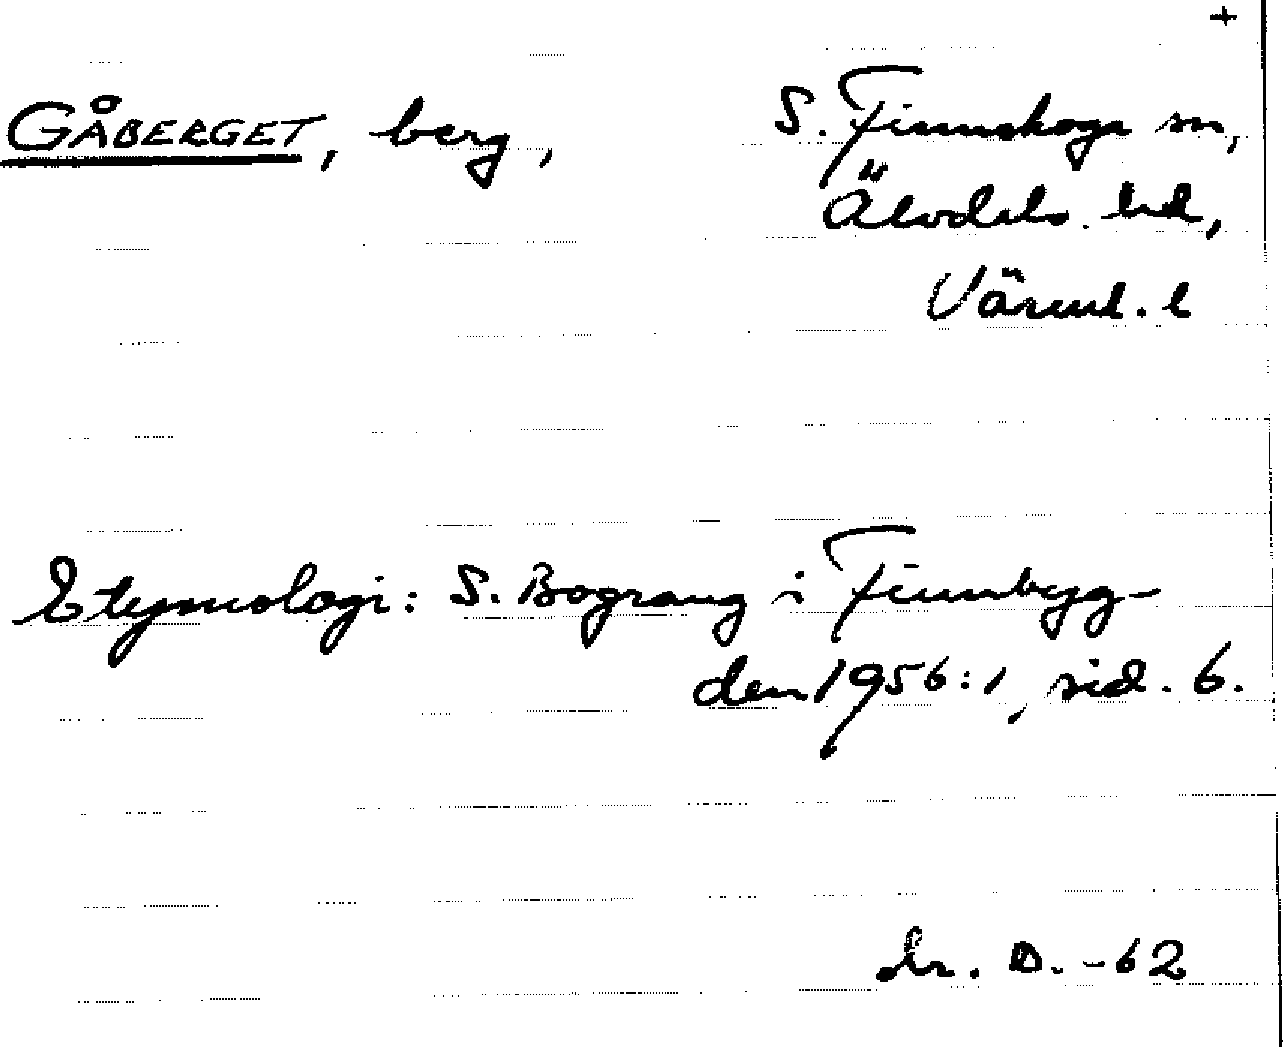 +
GÅBERGET, berg, S. Finnskoga sn,
Älvdals hd,
Värml. l
Etymologi: S. Bograng i Finnbyg-
den 1956:1, sid. 6.
D. -62